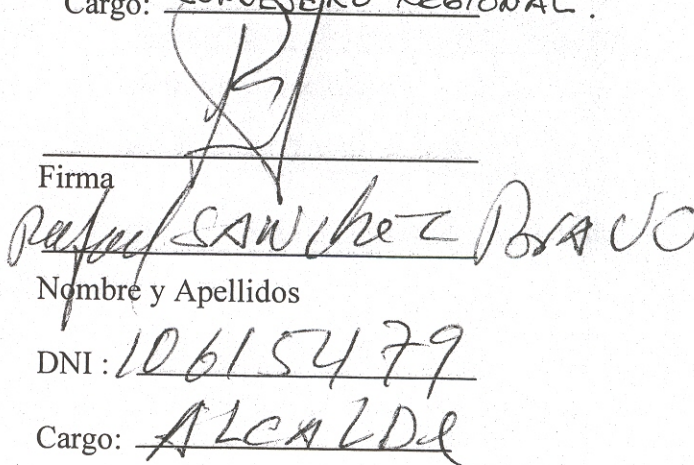 Cargo: CONSEJERO REGIONAL.
Firma
Rafael SANchez BrAVO
Nombre y Apellidos
DNI : 10615479
Cargo: ALCALDe